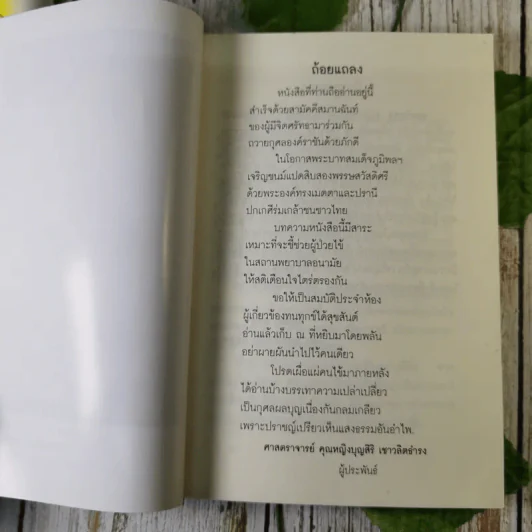 ถ้อยแถลง
หนังสือที่ท่านถืออ่านอยู่นี้
สำเร็จด้วยสามัคคีสมานฉันท์
ของผู้มีจิตศรัทธามาร่วมกัน
ถวายกุศลองค์ราชันด้วยภักดี
ในโอกาสพระบาทสมเด็จภูมิพลฯ
เจริญชนม์แปดสิบสองพรรษสวัสดิศรี
ด้วยพระองค์ทรงเมตตาและปรานี
ปกเกศีร่มเกล้าชนชาวไทย
บทความหนังสือนี้มีสาระ
เหมาะที่จะชี้ช่วยผู้ป่วยไข้
ในสถานพยาบาลอนามัย
ให้สติเตือนใจไตร่ตรองกัน
ขอให้เป็นสมบัติประจำห้อง
ผู้เกี่ยวข้องทนทุกข์ได้สุขสันต์
อ่านแล้วเก็บ ณ ที่หยิบมาโดยพลัน
อย่าผายผันนำไปไว้คนเดียว
โปรดเผื่อแผ่คนไข้มาภายหลัง
ได้อ่านบ้างบรรเทาความเปล่าเปลี่ยว
เป็นกุศลผลบุญเนื่องกันกลมเกลียว
เพราะปราชญ์เปรียวเห็นแสงธรรมอันอำไพ.
ศาสตราจารย์ คุณหญิงบุญสิริ เชาวลิตธำรง
ผู้ประพันธ์